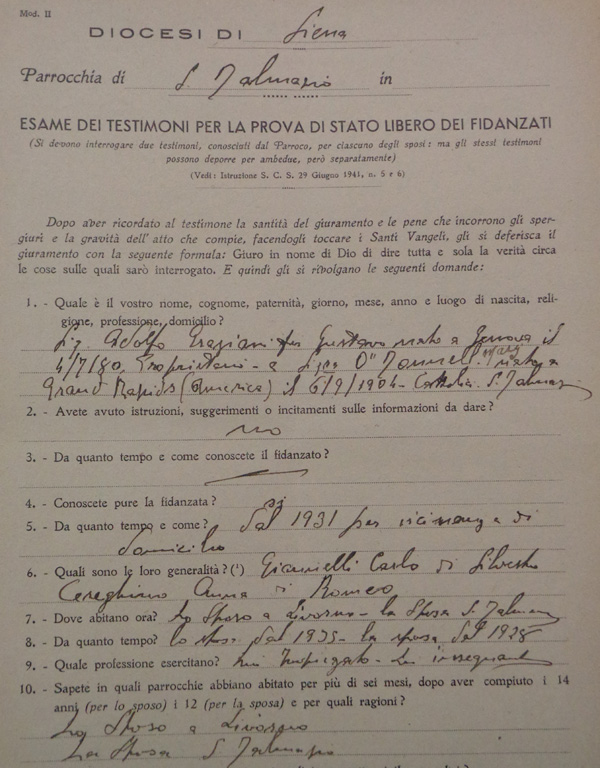 Mod. II
DIOCESI DI Siena
Parrocchia di S. Dalmazio in
ESAME DEI TESTIMONI PER LA PROVA DI STATO LIBERO DEI FIDANZATI
(Si devono interrogare due testimoni, conosciuti dal Parroco, per ciascuno degli sposi: ma gli stessi testimoni
possono deporre per ambedue, però separatamente)
(Vedi: Istruzione S. C. S. 29 Giugno 1941, n. 5 e 6)
Dopo aver ricordato al testimone la santità del giuramento e le pene che incorrono gli sper-
giuri e la gravità dell'atto che compie, facendogli toccare i Santi Vangeli, gli si deferisca il
giuramento con la seguente formula: Giuro in nome di Dio di dire tutta e sola la verità circa
le cose sulle quali sarò interrogato. E quindi gli si rivolgano le seguenti domande:
1. - Quale è il vostro nome, cognome, paternità, giorno, mese, anno e luogo di nascita, reli-
gione, professione, domicilio?
Sig. Adolfo Graziani fu Gustavo nato a Genova il
4/7/80, Proprietario - a nata a
Grand Rapids (America) il 6/9/1904 - Cattolica. S. Dalmazio
2. - Avete avuto istruzioni, suggerimenti o incitamenti sulle informazioni da dare?
no
3. - Da quanto tempo e come conoscete il fidanzato?
4. - Conoscete pure la fidanzata? si
5. - Da quanto tempo e come? dal 1931 per vicinanza di
domicilio
6. - Quali sono le loro generalità? (¹) Giannelli Carlo di Silvestro
Cereghino Anna di Romeo
7. - Dove abitano ora? Lo Sposo a Livorno - la Sposa S. Dalmazio
8. - Da quanto tempo? lo sposo dal 1935 - la sposa dal 1928
9. - Quale professione esercitano? lui Impiegato - Lei insegnante
10. - Sapete in quali parrocchie abbiano abitato per più di sei mesi, dopo aver compiuto i 14
anni (per lo sposo) i 12 (per la sposa) e per quali ragioni?
Lo Sposo a Livorno
La Sposa S. Dalmazio